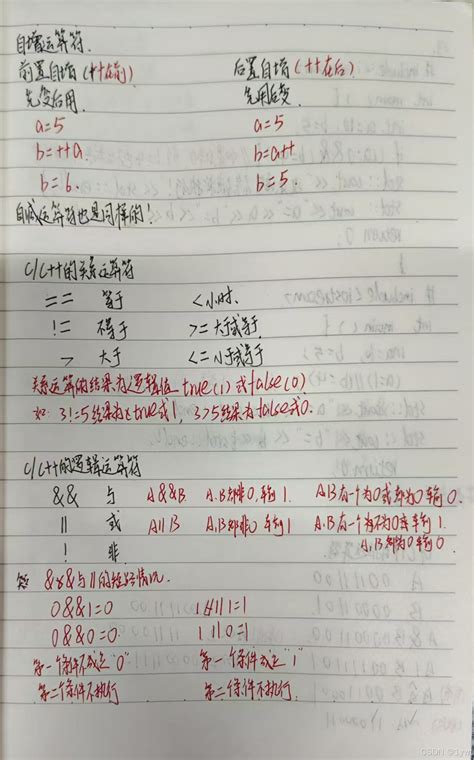 自增运算符.
前置自增(++在前) 后置自增(++在后)
先变后用. 先用后变.
a=5 a=5
b=++a. b=a++
b=6. b=5
自减运算符也是同样的!
C/C++的关系运算符
== 等于 <小时.
!= 不等于 >=大于或等于
> 大于 <=小于或等于
关系运算的结果为逻辑值 true(1)或false(0)
如: 3!=5结果为true或1, 3>5结果为false或0.
C/C++的逻辑运算符
&& 与 A&&B A.B都非0.才为1. A.B有一个为0或都为0 才为0.
|| 或 A||B A.B都非0 才为1 A.B有一个不为0 才为1.
! 非 A.B都为0 才为0
&&与||的短路情况.
0&&1=0 1||1=1
0&&0=0 1||0=1
第一个条件不成立"0" 第一个条件成立"1"
第二个条件不执行 第二条件不执行